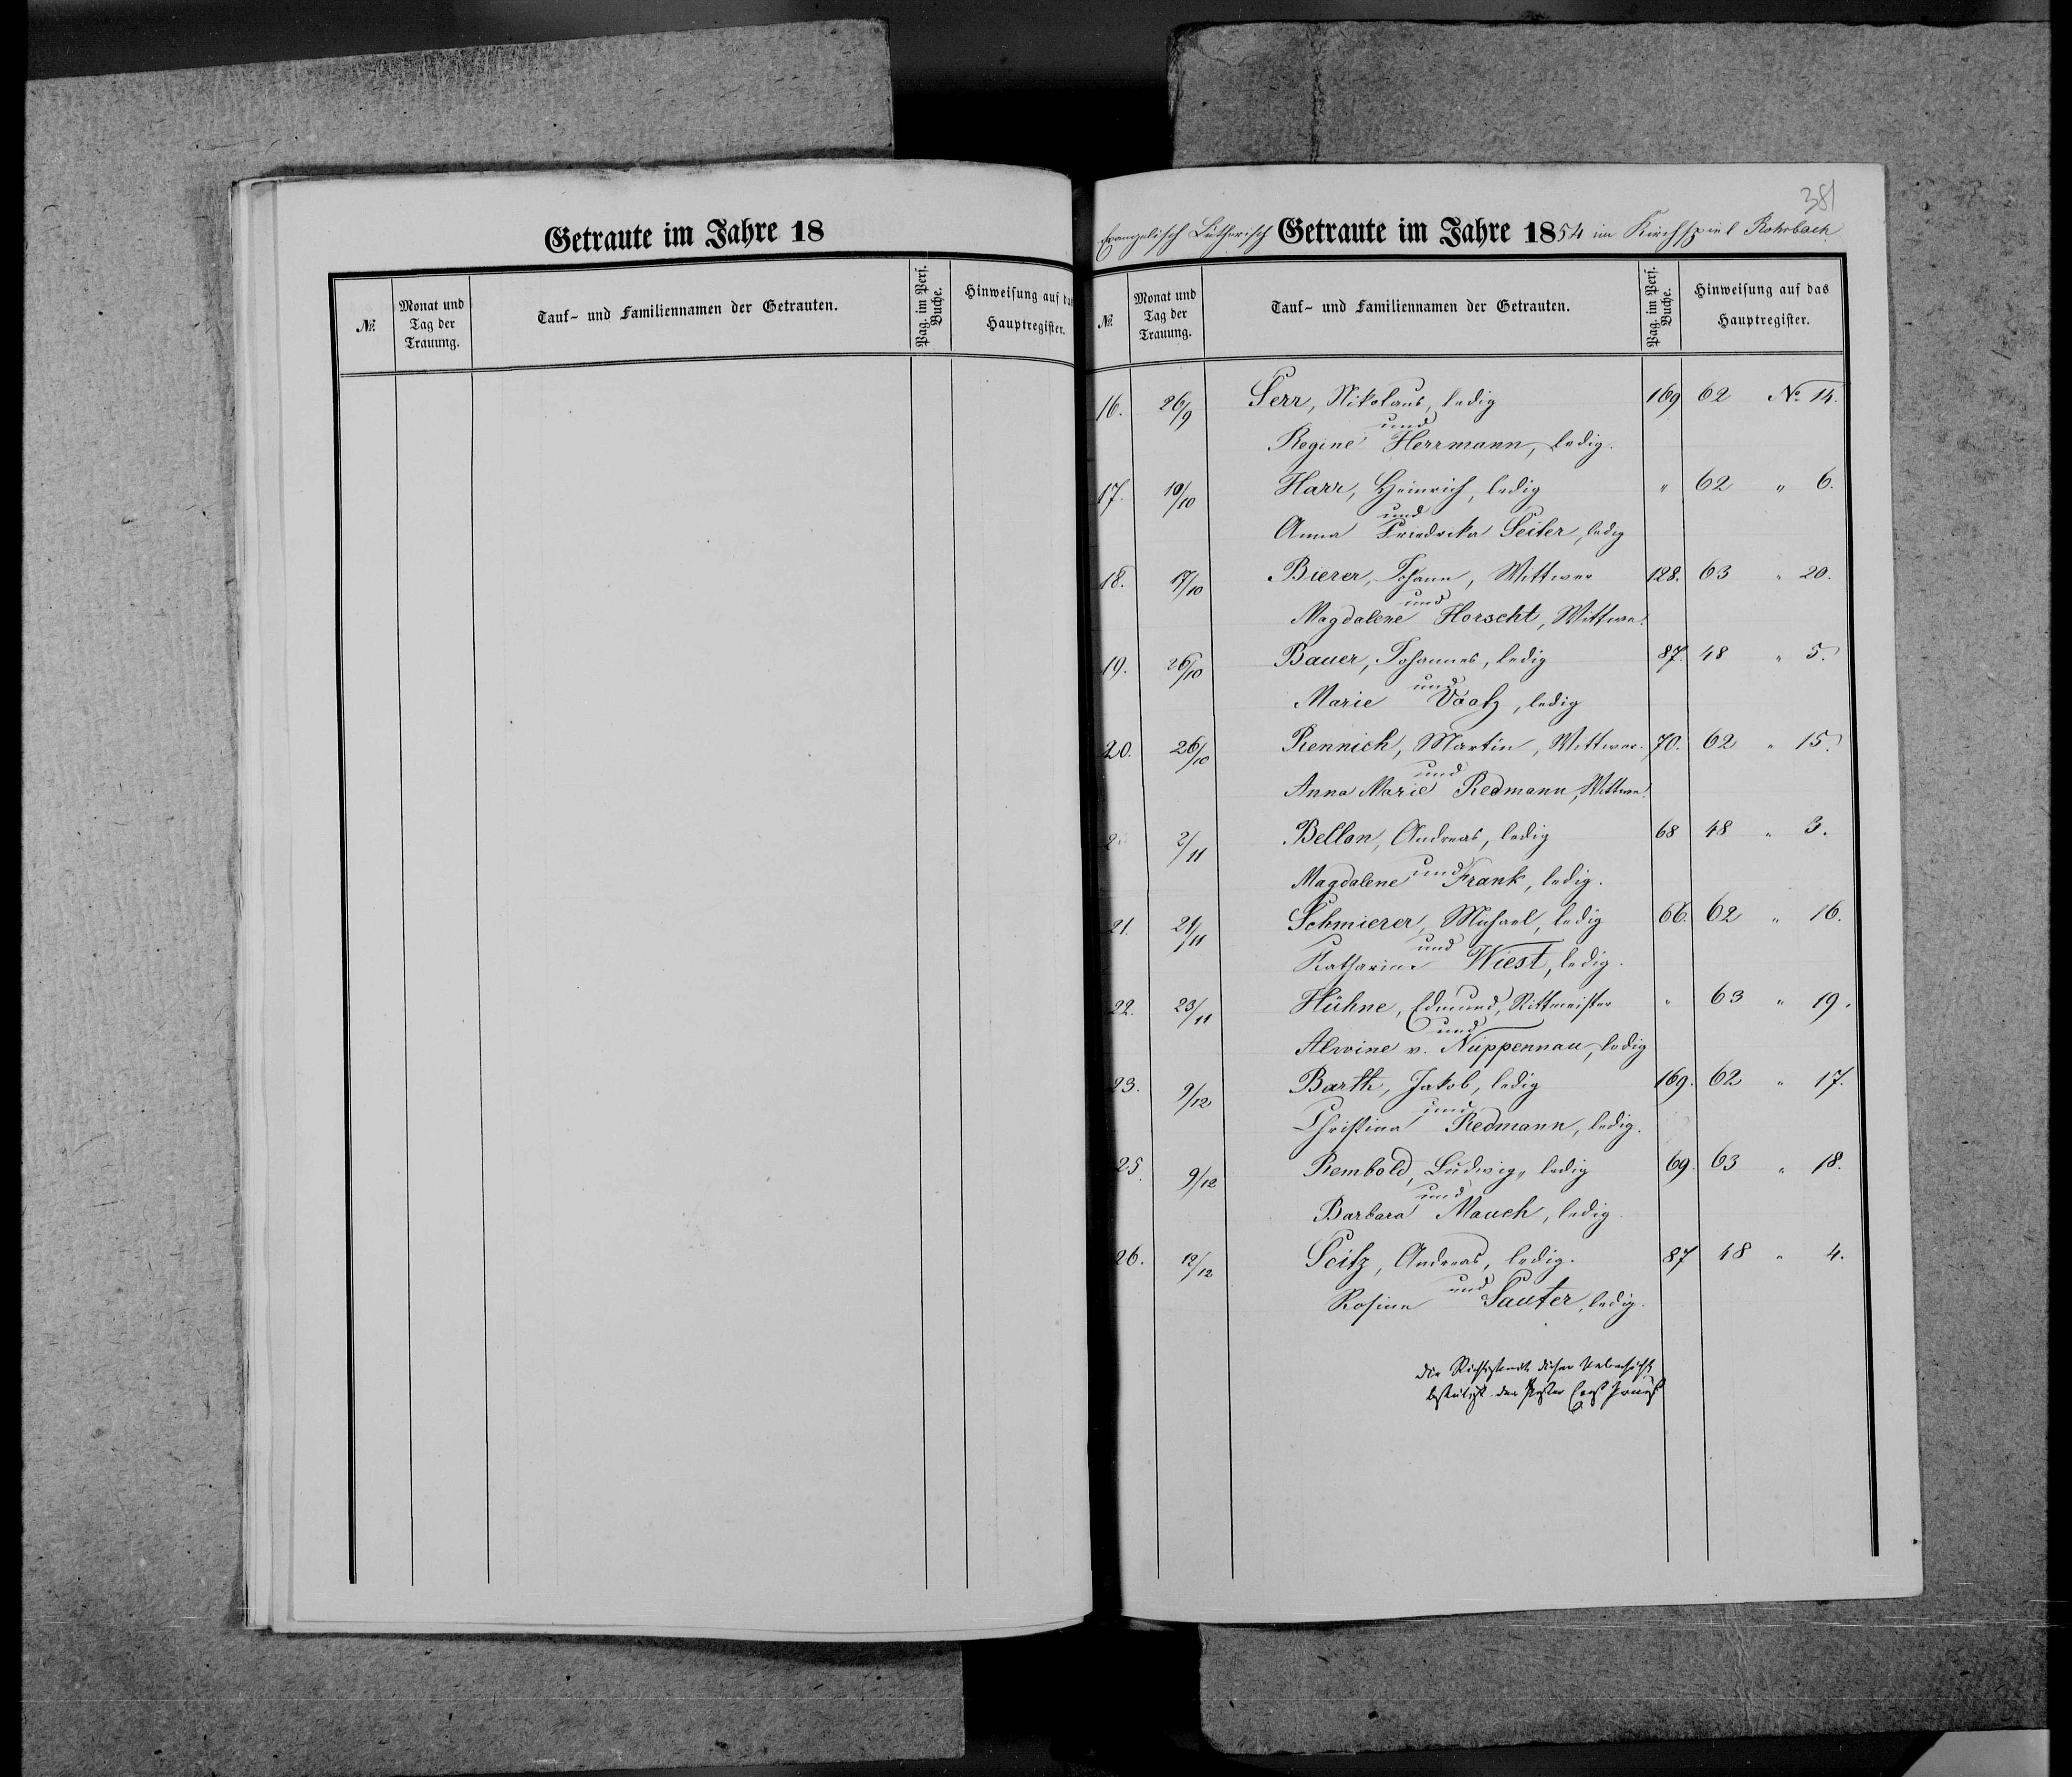 Getraute im Jahre 18
№
Monat und Tag der Trauung.
Tauf- und Familiennamen der Getrauten.
Pag. im Pers. Buche.
Hinweisung auf das Hauptregister.
381
Evangelisch Lutherisch Getraute im Jahre 1854 im Kirchspiel Rohrbach
№
Monat und Tag der Trauung.
Tauf- und Familiennamen der Getrauten.
Pag. im Pers. Buche.
Hinweisung auf das Hauptregister.
16. 26/9 Serr, Nikolaus, ledig 169 62 No 14.
und
Regine Herrmann, ledig.
17. 10/10 Harr, Heinrich, ledig " 62 " 6.
und
Anna Friedrika Seiler, ledig
18. 17/10 Bierer, Johann, Wittwer 128. 63 " 20.
und
Magdalene Horscht, Wittwe.
19. 26/10 Bauer, Johannes, ledig 87. 48 " 5.
und
Marie Vaatz, ledig
20. 26/10 Rennich, Martin, Wittwer. 70. 62 " 15.
und
Anna Marie Redmann, Wittwe.
2/11 Bellon, Andreas, ledig 68 48 " 3.
und
Magdalene Frank, ledig.
21. 21/11 Schmierer, Michael, ledig 66. 62 " 16.
und
Katharina Wiest, ledig.
22. 23/11 Hühne, Edmund, Rittmeister " 63 " 19.
und
Alwine v. Nuppennau, ledig
23. 9/12 Barth, Jakob, ledig 169. 62 " 17.
und
Christina Redmann, ledig.
25. 9/12 Rembold, Ludwig, ledig 69. 63 " 18.
und
Barbara Mauch, ledig.
26. 12/12 Seitz, Andreas, ledig. 87 48 " 4.
und
Rosina Sauter, ledig.
Die Richtigkeit dieser Uebersicht
bestätigt der Pastor